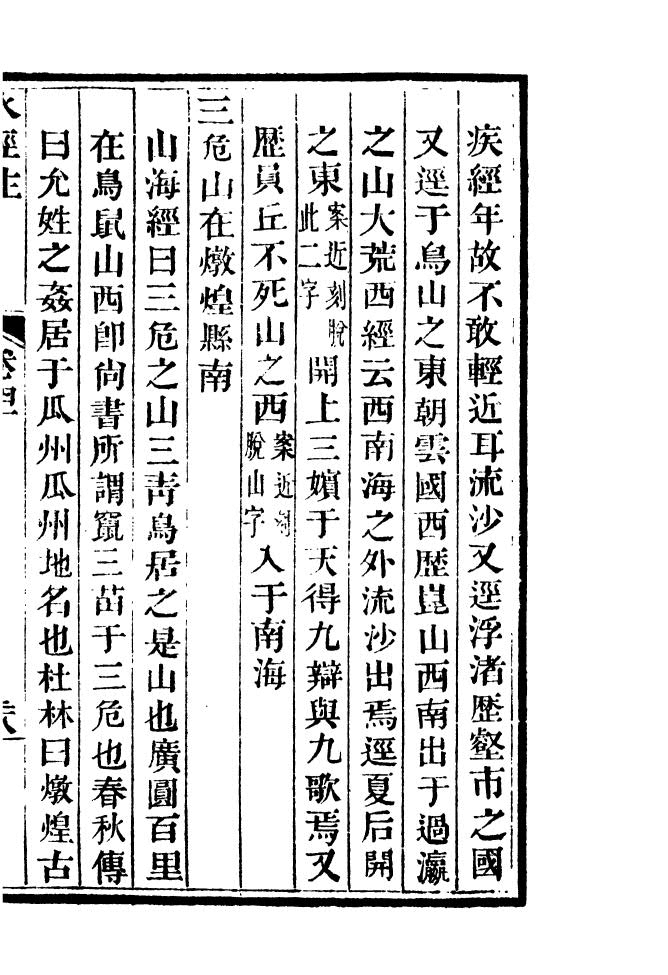 疾經年故不敢輕近耳流沙又逕浮渚歷壑市之國
又逕于鳥山之東朝雲國西歷崑山西南出于過瀛
之山大荒西經云西南海之外流沙出焉逕夏后開
之東案近刻脫此二字開上三嬪于天得九辯與九歌焉又
歷員丘不死山之西案近刻脫山字入于南海
三危山在燉煌縣南
山海經曰三危之山三靑鳥居之是山也廣圓百里
在鳥鼠山西卽尙書所謂竄三苗于三危也春秋傳
曰允姓之姦居于瓜州瓜州地名也杜林曰燉煌古
水經注 卷四